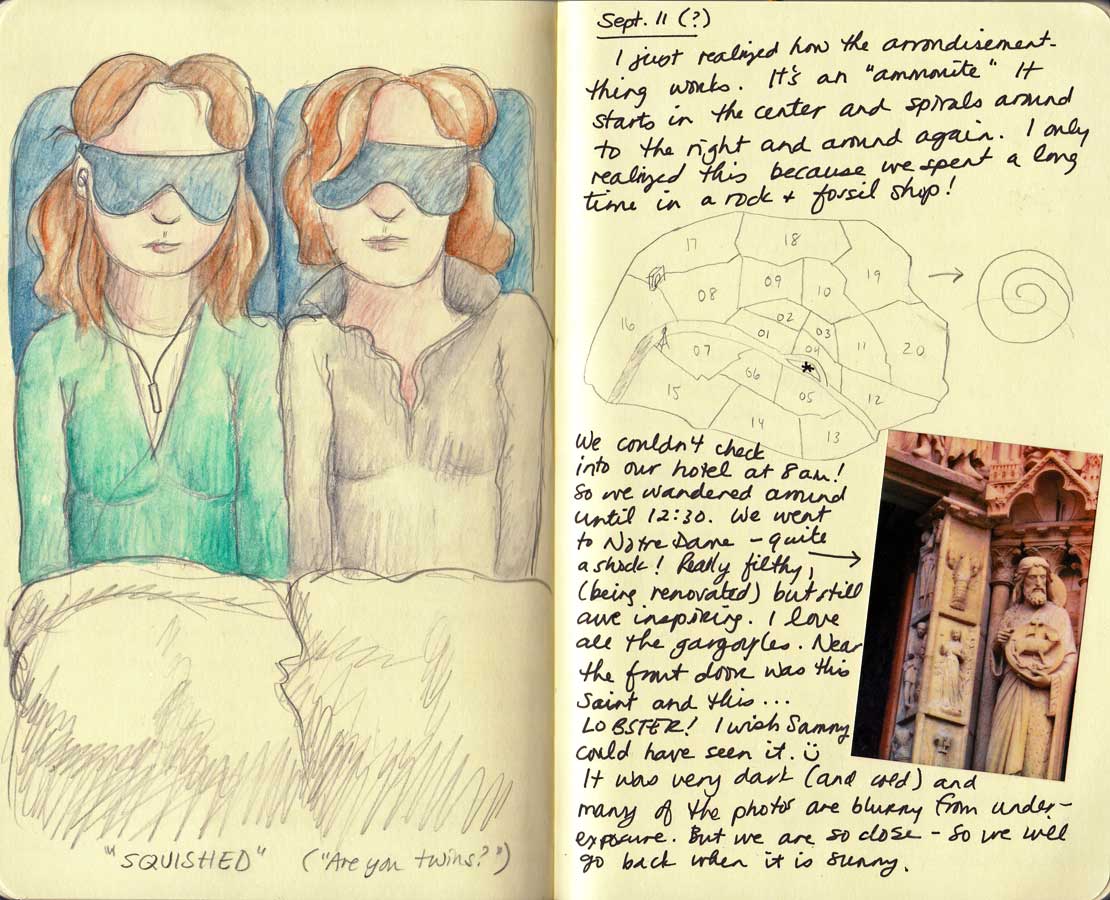 "SQUISHED" ("Are you twins?")
Sept. 11 (?)
I just realized how the arrondisement-
thing works. It's an "ammonite" It
starts in the center and spirals around
to the right and around again. I only
realized this because we spent a long
time in a rock + forsil shop!
17
18
19
08
09
10
16
02
01
03
04
07
11
20
06
*
15
05
12
14
13
We couldn't check
into our hotel at 8am!
So we wandered around
until 12:30. We went
to Notre Dame - quite
a shock! Really filthy,
(being renovated) but still
awe inspiring. I love
all the gargoyles. Near
the front door was this
Saint and this...
LOBSTER! I wish Sammy
could have seen it.
It was very dark (and cold) and
many of the photos are blurry from under-
exposure. But we are so close - So we will
go back when it is sunny.